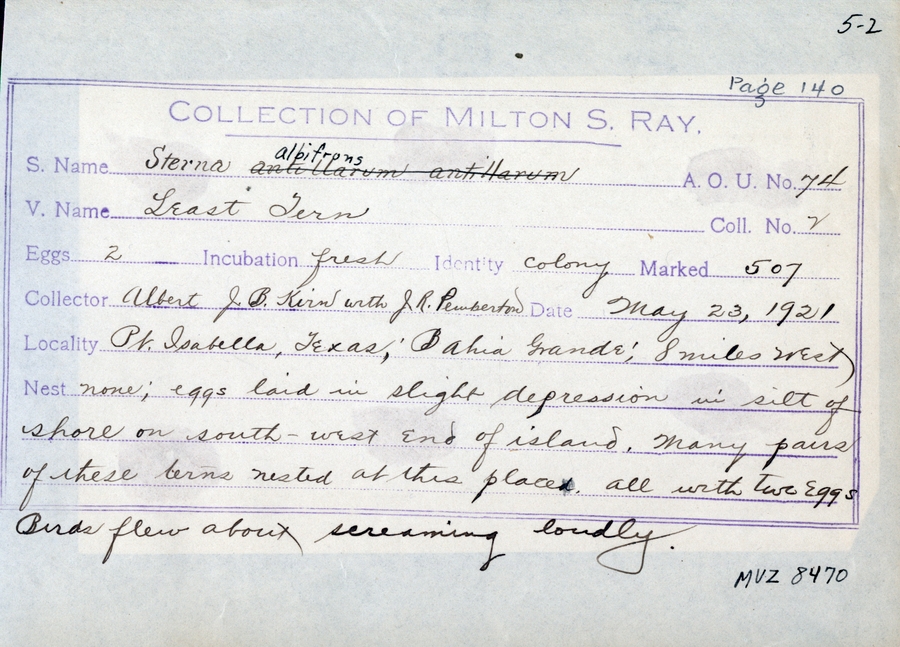 5-2
Page 140
COLLECTION OF MILTON S. RAY.
albifrons
S. Name Sterna antillarum antillarum A. O. U. No. 74
V. Name Least Tern Coll. No. 2
Eggs 2 Incubation fresh Identity colony Marked 507
Collector Albert J. B. Kirn with J. R. Pemberton Date May 23, 1921
Locality Pt. Isabella, Texas; Bahia Grande; 8 miles west)
Nest none; eggs laid in slight depression in silt of
shore on south-west end of island. Many pairs
of these terns nested at this place. all with two Eggs
Birds flew about screaming loudly.
MVZ 8470